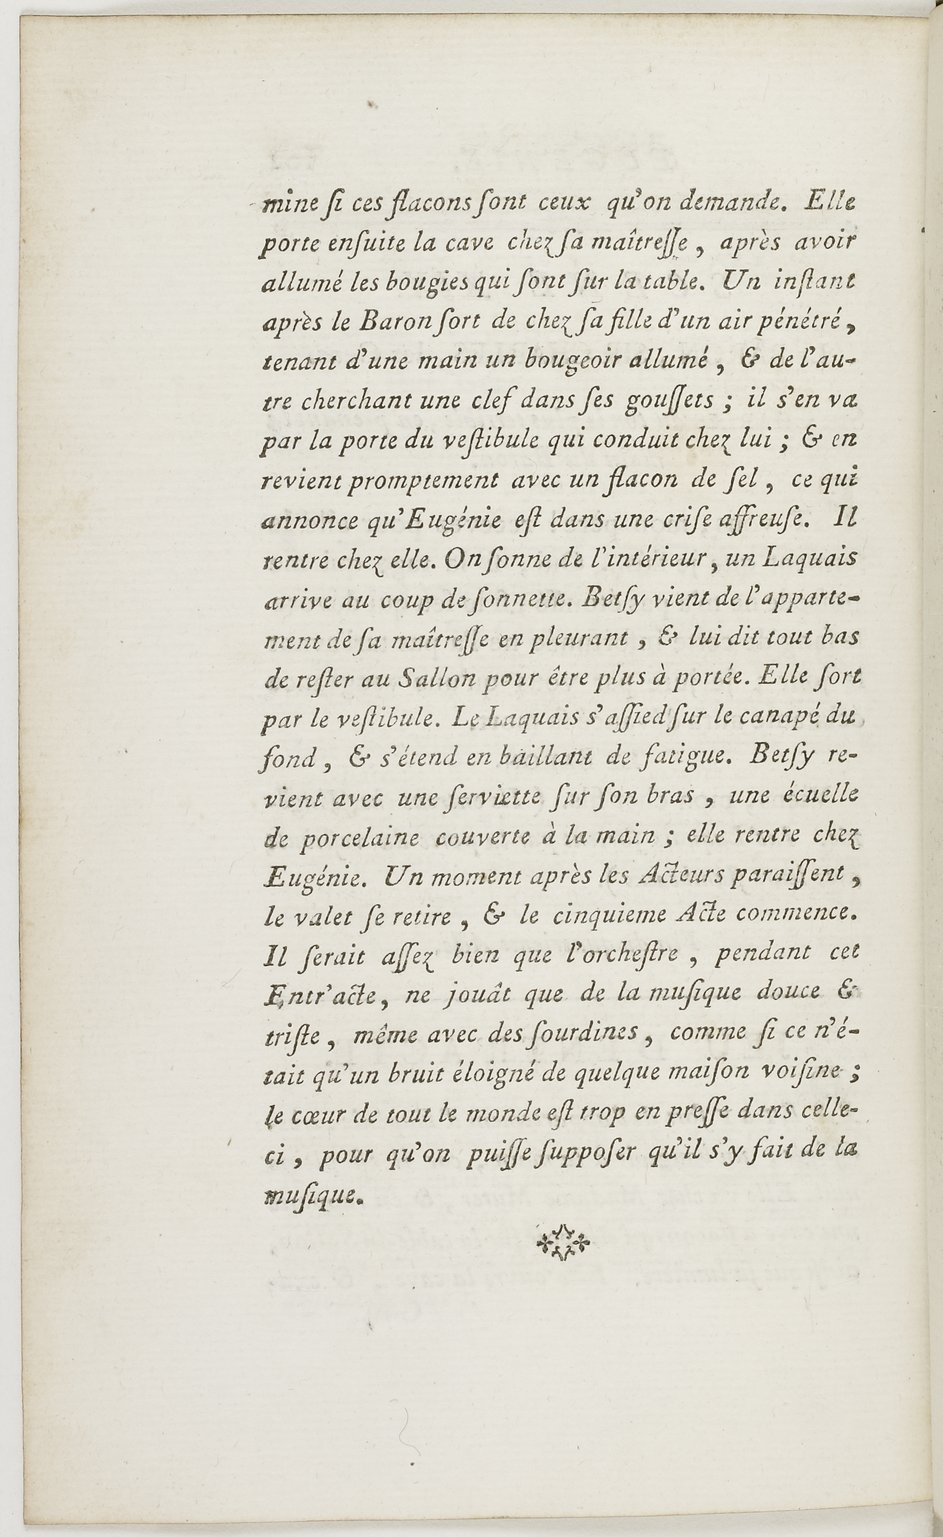 mine ſi ces flacons ſont ceux qu'on demande. Elle
porte enſuite la cave chez ſa maîtreſſe, après avoir
allumé les bougies qui ſont ſur la table. Un inſtant
après le Baron ſort de chez ſa fille d'un air pénétré,
tenant d'une main un bougeoir allumé, & de l'au-
tre cherchant une clef dans ſes gouſſets ; il s'en va
par la porte du veſtibule qui conduit chez lui ; & en
revient promptement avec un flacon de ſel, ce qui
annonce qu'Eugénie eſt dans une criſe affreuſe. Il
rentre chez elle. On ſonne de l'intérieur, un Laquais
arrive au coup de ſonnette. Betſy vient de l'apparte-
ment de ſa maîtreſſe en pleurant, & lui dit tout bas
de reſter au Sallon pour être plus à portée. Elle ſort
par le veſtibule. Le Laquais s'aſſied ſur le canapé du
fond, & s'étend en bâillant de fatigue. Betſy re-
vient avec une ſerviette ſur ſon bras, une écuelle
de porcelaine couverte à la main ; elle rentre chez
Eugénie. Un moment après les Acteurs paraiſſent,
le valet ſe retire, & le cinquieme Acte commence.
Il ſerait aſſez bien que l'orcheſtre, pendant cet
Entr'acte, ne jouât que de la muſique douce &
triſte, même avec des ſourdines, comme ſi ce n'é-
tait qu'un bruit éloigné de quelque maiſon voiſine ;
le cœur de tout le monde eſt trop en preſſe dans celle-
ci, pour qu'on puiſſe ſuppoſer qu'il s'y fait de la
muſique.